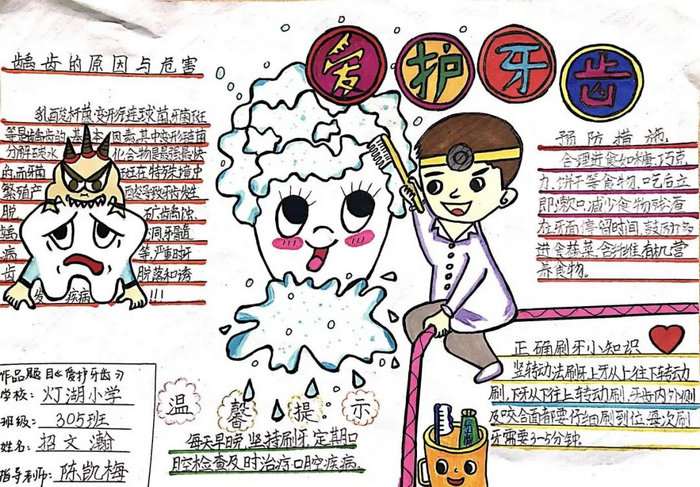 爱护牙齿
龋齿的原因与危害
乳酸杆菌、变形链球菌、牙菌斑
等是龋齿的
因素,其中变形链菌
分解碳水
化合物
的,而细菌
在特殊环境中
繁殖产
脱
矿、龋蚀、
龋
洞、牙髓
病
等,严重时牙
齿
脱落和诱
发
疾病
!!!
预防措施
合理进食如糖、巧克
力、饼干等食物,吃后立
即漱口,减少食物残渣
在牙面停留时间,鼓励多
进食蔬菜,含纤维,有机营
养食物。
正确刷牙小知识
竖转动法刷牙上牙从上往下转动
刷,下牙从下往上转动刷,牙齿内外侧
及咬合面都要仔细刷到位,每次刷
牙需要3-5分钟.
温馨提示
每天早晚,坚持刷牙,定期口
腔检查及时治疗口腔疾病。
作品题目:《爱护牙齿》
学校:灯湖小学
班级:305班
姓名:招文瀚
指导老师:陈凯梅